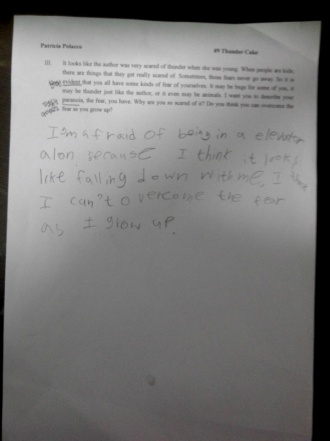 Patricia Polacco
#9 Thunder Cake
III. It looks like the author was very scared of thunder when she was young. When people are kids,
there are things that they get really scared of. Sometimes, those fears never go away. So it is
evident that you all have some kinds of fear of yourselves. It may be bugs for some of you, it
may be thunder just like the author, or it even may be animals. I want you to describe your
paranoia, the fear, you have. Why are you so scared of it? Do you think you can overcome the
fear as you grow up?
I'm afraid of being in a elevator
alon, because I think it looks
like falling down with me, I
I can't overcome the fear
as I grow up.